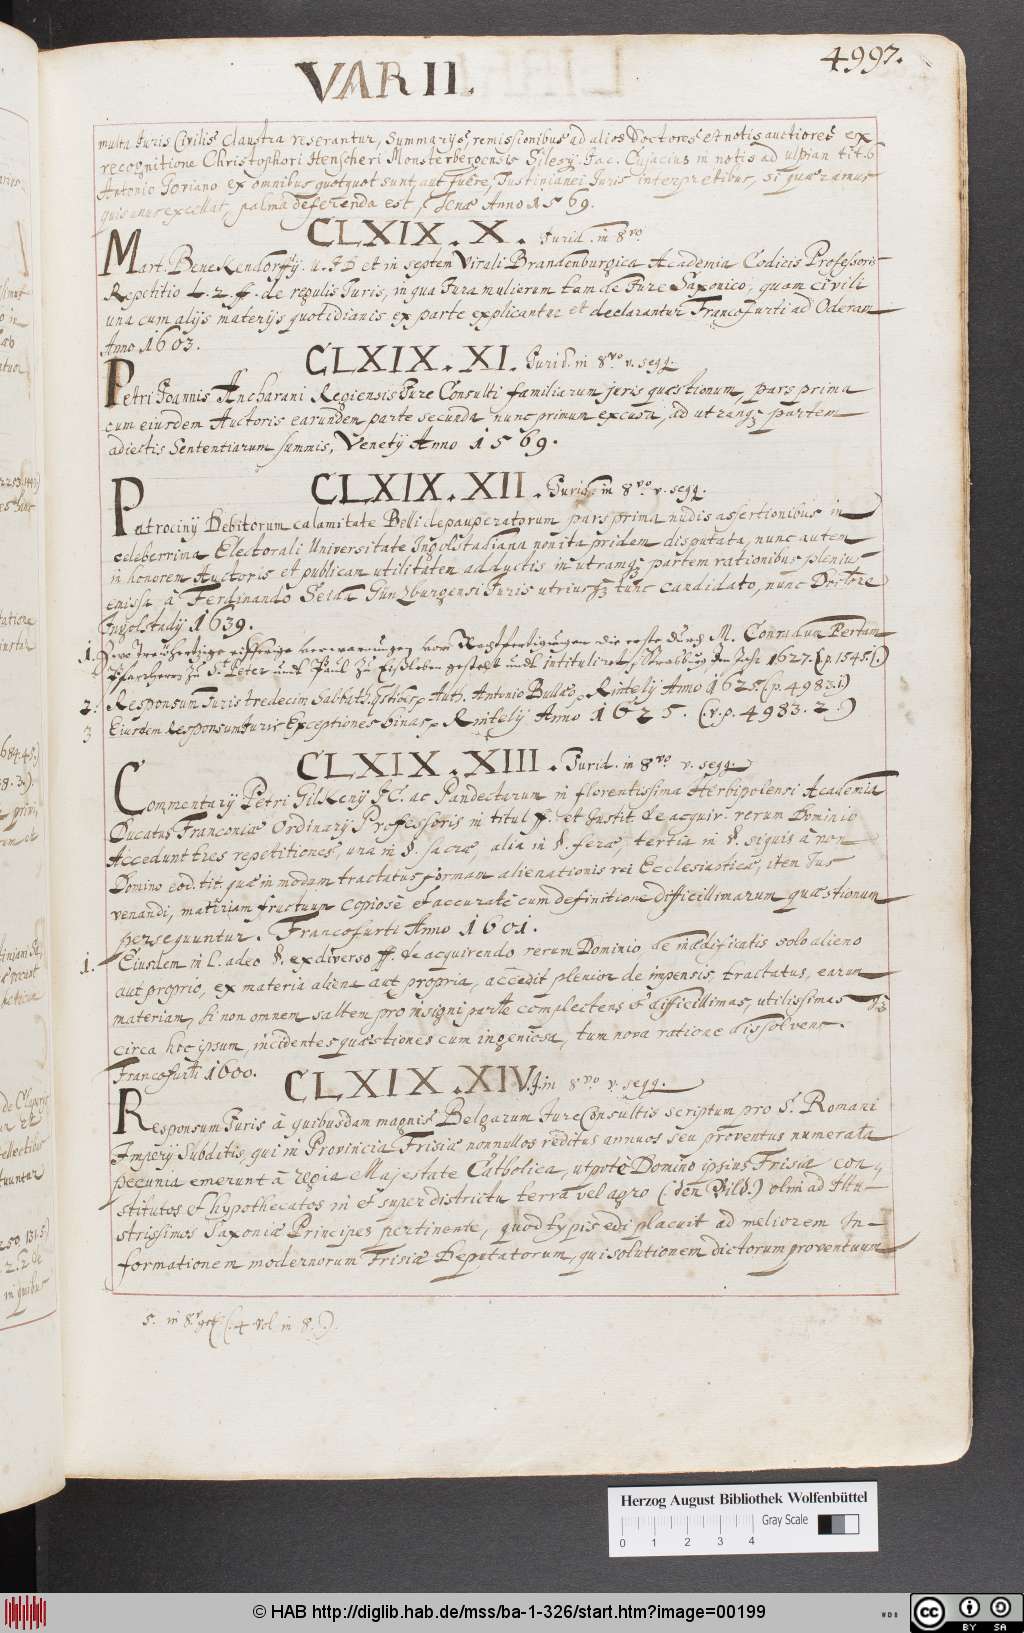 VARII.
4997.
multa Juris Civilis Claustra reserantur, Summarijs, remissionibus ad alios Doctores et notis auctiores ex
recognitione Christophori Henscheri Monsterbergensis Silesij. Jac. Cujacius in notis ad ulpian tit. 6
Antonio Goriano ex omnibus quotquot sunt, aut fuere, Justinianei Juris interpretibus, si quæramus
quis unus excellat, palma deferenda est, Jenæ Anno 1569.
CLXIX. X. Jurid. in 8vo
Mart. Benekendorffij. u. J D et in septem Virali Brandenburgica Academia Codicis Professoris
Repetitio L. 2. ff. de regulis Juris, in qua Jura mulierum tam de Jure Saxonico, quam civili
una cum alijs materijs quotidianis ex parte explicantur et declarantur Francofurti ad Oderam
Anno 1603.
CLXIX. XI. Jurid. in 8vo v. seqq.
Petri Joannis Ancharani Regiensis Jure Consulti familiarum juris quæstionum, pars prima
cum eiusdem Auctoris earundem parte secunda nunc primum excusa, ad utramq; partem
adiectis Sententiarum summis, Venetij Anno 1569.
CLXIX. XII. Jurid. in 8vo v. seqq.
Patrocinij Debitorum calamitate Belli depauperatorum pars prima nudis assertionibus in
celeberrima Electorali Universitate Ingolstadiana non ita pridem disputata, nunc autem
in honorem Auctoris et publicam utilitatem adductis in utramq; partem rationibus plenius
emissa, à Ferdinando Ginzburgensi Juris utriusq; tunc candidato, nunc Doctore
Ingolstadij 1639.
1. Zwo Treuhertzige eifferige verwarnungen von Rechtfertigungen die erste durch M. Conradum
Pfarrherrn zu St. Peter undt Paul zu Eißleben gestelt undt intituliret, Straßburg Im Jahr 1627. (p. 1545.)
2. Responsum Juris tredecim Auth. Antonio Bullæo, Rintelij Anno 1625. (p. 4983.1)
3 Eiusdem Responsum Juris Exceptiones Rintelij Anno 1625. (v. p. 4983. 2.)
CLXIX. XIII. Jurid. in 8vo v. seqq.
Commentarij Petri Gilkenij JC. ac Pandectarum in florentissima Herbipolensi Academia
Ducatus Franconiæ Ordinarij Professoris in titul ff. et Instit. de acquir. rerum Dominio
Accedunt tres repetitiones, una in §. sacræ, alia in §. feræ, tertia in §. siquis à non
Domino eod. tit. quæ in modum tractatus formam alienationis rei Ecclesiasticæ, item Jus
venandi, materiam fructuum copiosè et accuratè cum definitione difficillimarum quæstionum
persequuntur. Francofurti Anno 1601.
1. Eiusdem in L. adeo §. ex diverso ff. de acquirendo rerum Dominio, de inædificatis solo alieno
aut proprio, ex materia aliena aut propria, accedit plenior de impensis tractatus, earum
materiam, si non omnem saltem pro insigni parte complectens & difficillimas, utilissimasq;
circa hoc ipsum, incidentes quæstiones cum ingeniosa, tum nova ratione dissolvens.
Francofurti 1600.
CLXIX. XIV. J. in 8vo v. seqq.
Responsum Juris à quibusdam magnis Belgarum Jure Consultis scriptum pro S. Romani
Imperij Subditis, qui in Provincia Frisiæ nonnullos reditus annuos seu proventus numerata
pecunia emerunt à Regia Majestate Catholica, utpotè Domino ipsius Frisiæ con
stitutos et hypothecatos in et super districtu terra vel agro (: den Bild.) olim ad Illu
strissimos Saxoniæ Principes pertinente, quod typis edi placuit ad meliorem In-
formationem modernorum Frisiæ Deputatorum, qui solutionem dictorum proventuum
5. in 8r. (. 4 Vol in 8.)
Herzog August Bibliothek Wolfenbüttel
Gray Scale
0 1 2 3 4
© HAB http://diglib.hab.de/mss/ba-1-326/start.htm?image=00199
WDB
cc BY SA